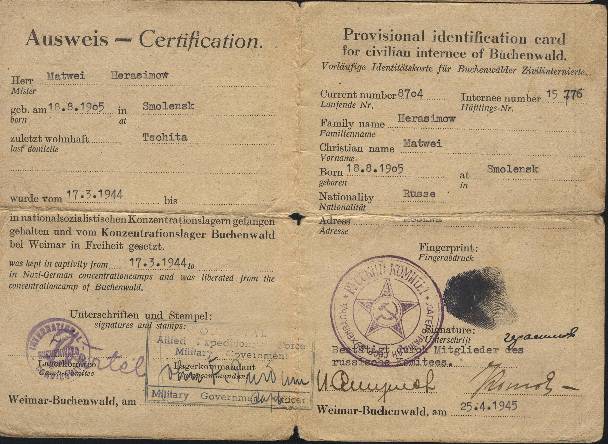 Ausweis — Certification.
Herr Matwei Herasimow
Mister
geb. am 18.8.1905 in Smolensk
born at
zuletzt wohnhaft Tschita
last domicile
wurde vom 17.3.1944 bis
in nationalsozialistischen Konzentrationslagern gefangen
gehalten und vom Konzentrationslager Buchenwald
bei Weimar in Freiheit gesetzt.
was kept in captivity from 17.3.1944 to
in Nazi-German concentrationcamps and was liberated from the
concentrationcamp of Buchenwald.
Unterschriften und Stempel:
signatures and stamps:
INTERNATIONAL
Lagerkomitee
Camp-Comitee
Allied Expeditionary Force
Military Government
Lagerkommandant
Military Government Officer
Weimar-Buchenwald, am
Provisional identification card
for civilian internee of Buchenwald.
Vorläufige Identitätskarte für Buchenwälder Zivilinternierte.
Current number 8704 Internee number 15776
Laufende Nr. Häftlings-Nr.
Family name Herasimow
Familienname
Christian name Matwei
Vorname
Born 18.8.1905 at Smolensk
geboren in
Nationality Russe
Nationalität
Adress
Adresse
Fingerprint:
Fingerabdruck
РУССКИЙ КОМИТЕТ
Signature:
Unterschrift
Mitglieder des
russische Komitees.
Weimar-Buchenwald, am 25.4.1945